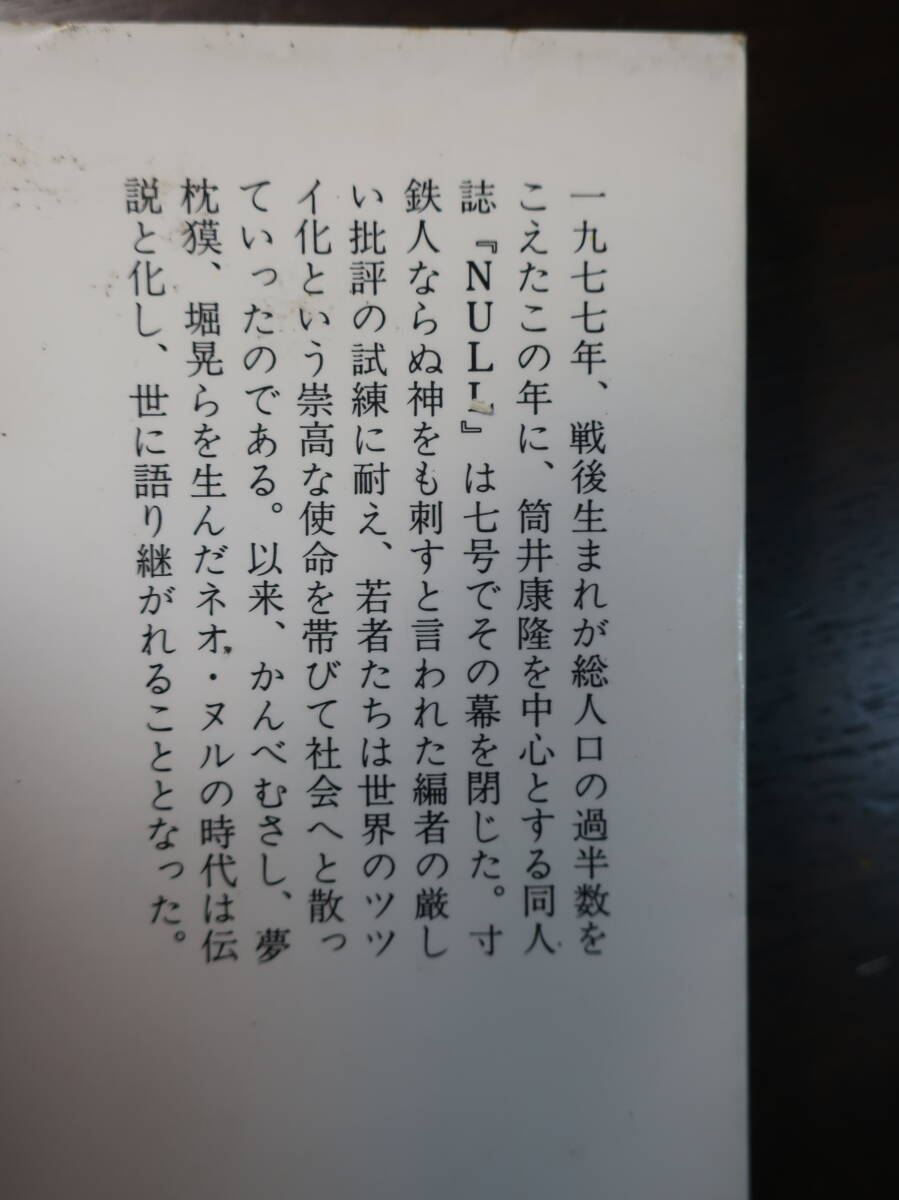 一九七七年、戦後生まれが総人口の過半数を
こえたこの年に、筒井康隆を中心とする同人
誌『NULL』は七号でその幕を閉じた。寸
鉄人ならぬ神をも刺すと言われた編者の厳し
い批評の試練に耐え、若者たちは世界のツツ
イ化という崇高な使命を帯びて社会へと散っ
ていったのである。以来、かんべむさし、夢
枕獏、堀晃らを生んだネオ・ヌルの時代は伝
説と化し、世に語り継がれることとなった。